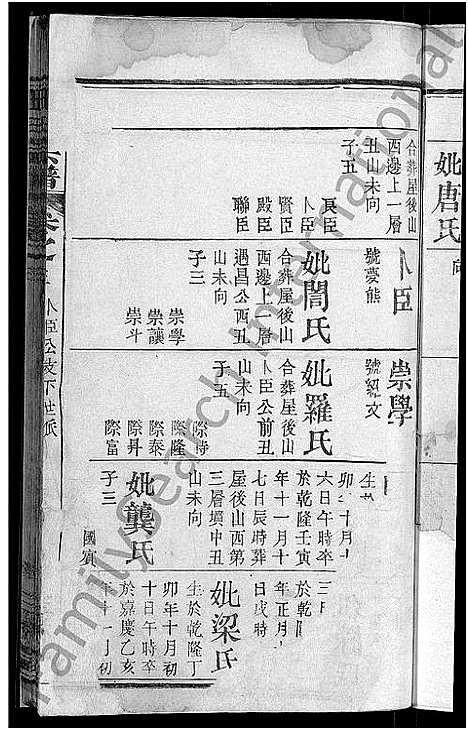 妣唐氏
向
合葬屋後山
西邊上一層
丑山未向
子五
長臣
卜臣
賢臣
殿臣
聯臣
卜臣
號夢熊
妣閆氏
合葬屋後山
西邊上一層
遇昌公西丑
山未向
子三
崇學
崇讓
崇斗
崇學
號紹文
妣羅氏
合葬屋後山
卜臣公前丑
山未向
子五
際時
際隆
際泰
際昇
際富
生於
卯年十月十
六日午時卒
於乾隆壬寅
年十一月十
七日辰時葬
屋後山西第
三層塡中丑
山未向
妣龔氏
子三
國賓
三月
於乾隆
年正月
日戌時
妣梁氏
生於乾隆丁
卯年十月初
十日午時卒
於嘉慶乙亥
年十一月初
宗譜
卷之
卜臣公支下世派
familysearch International